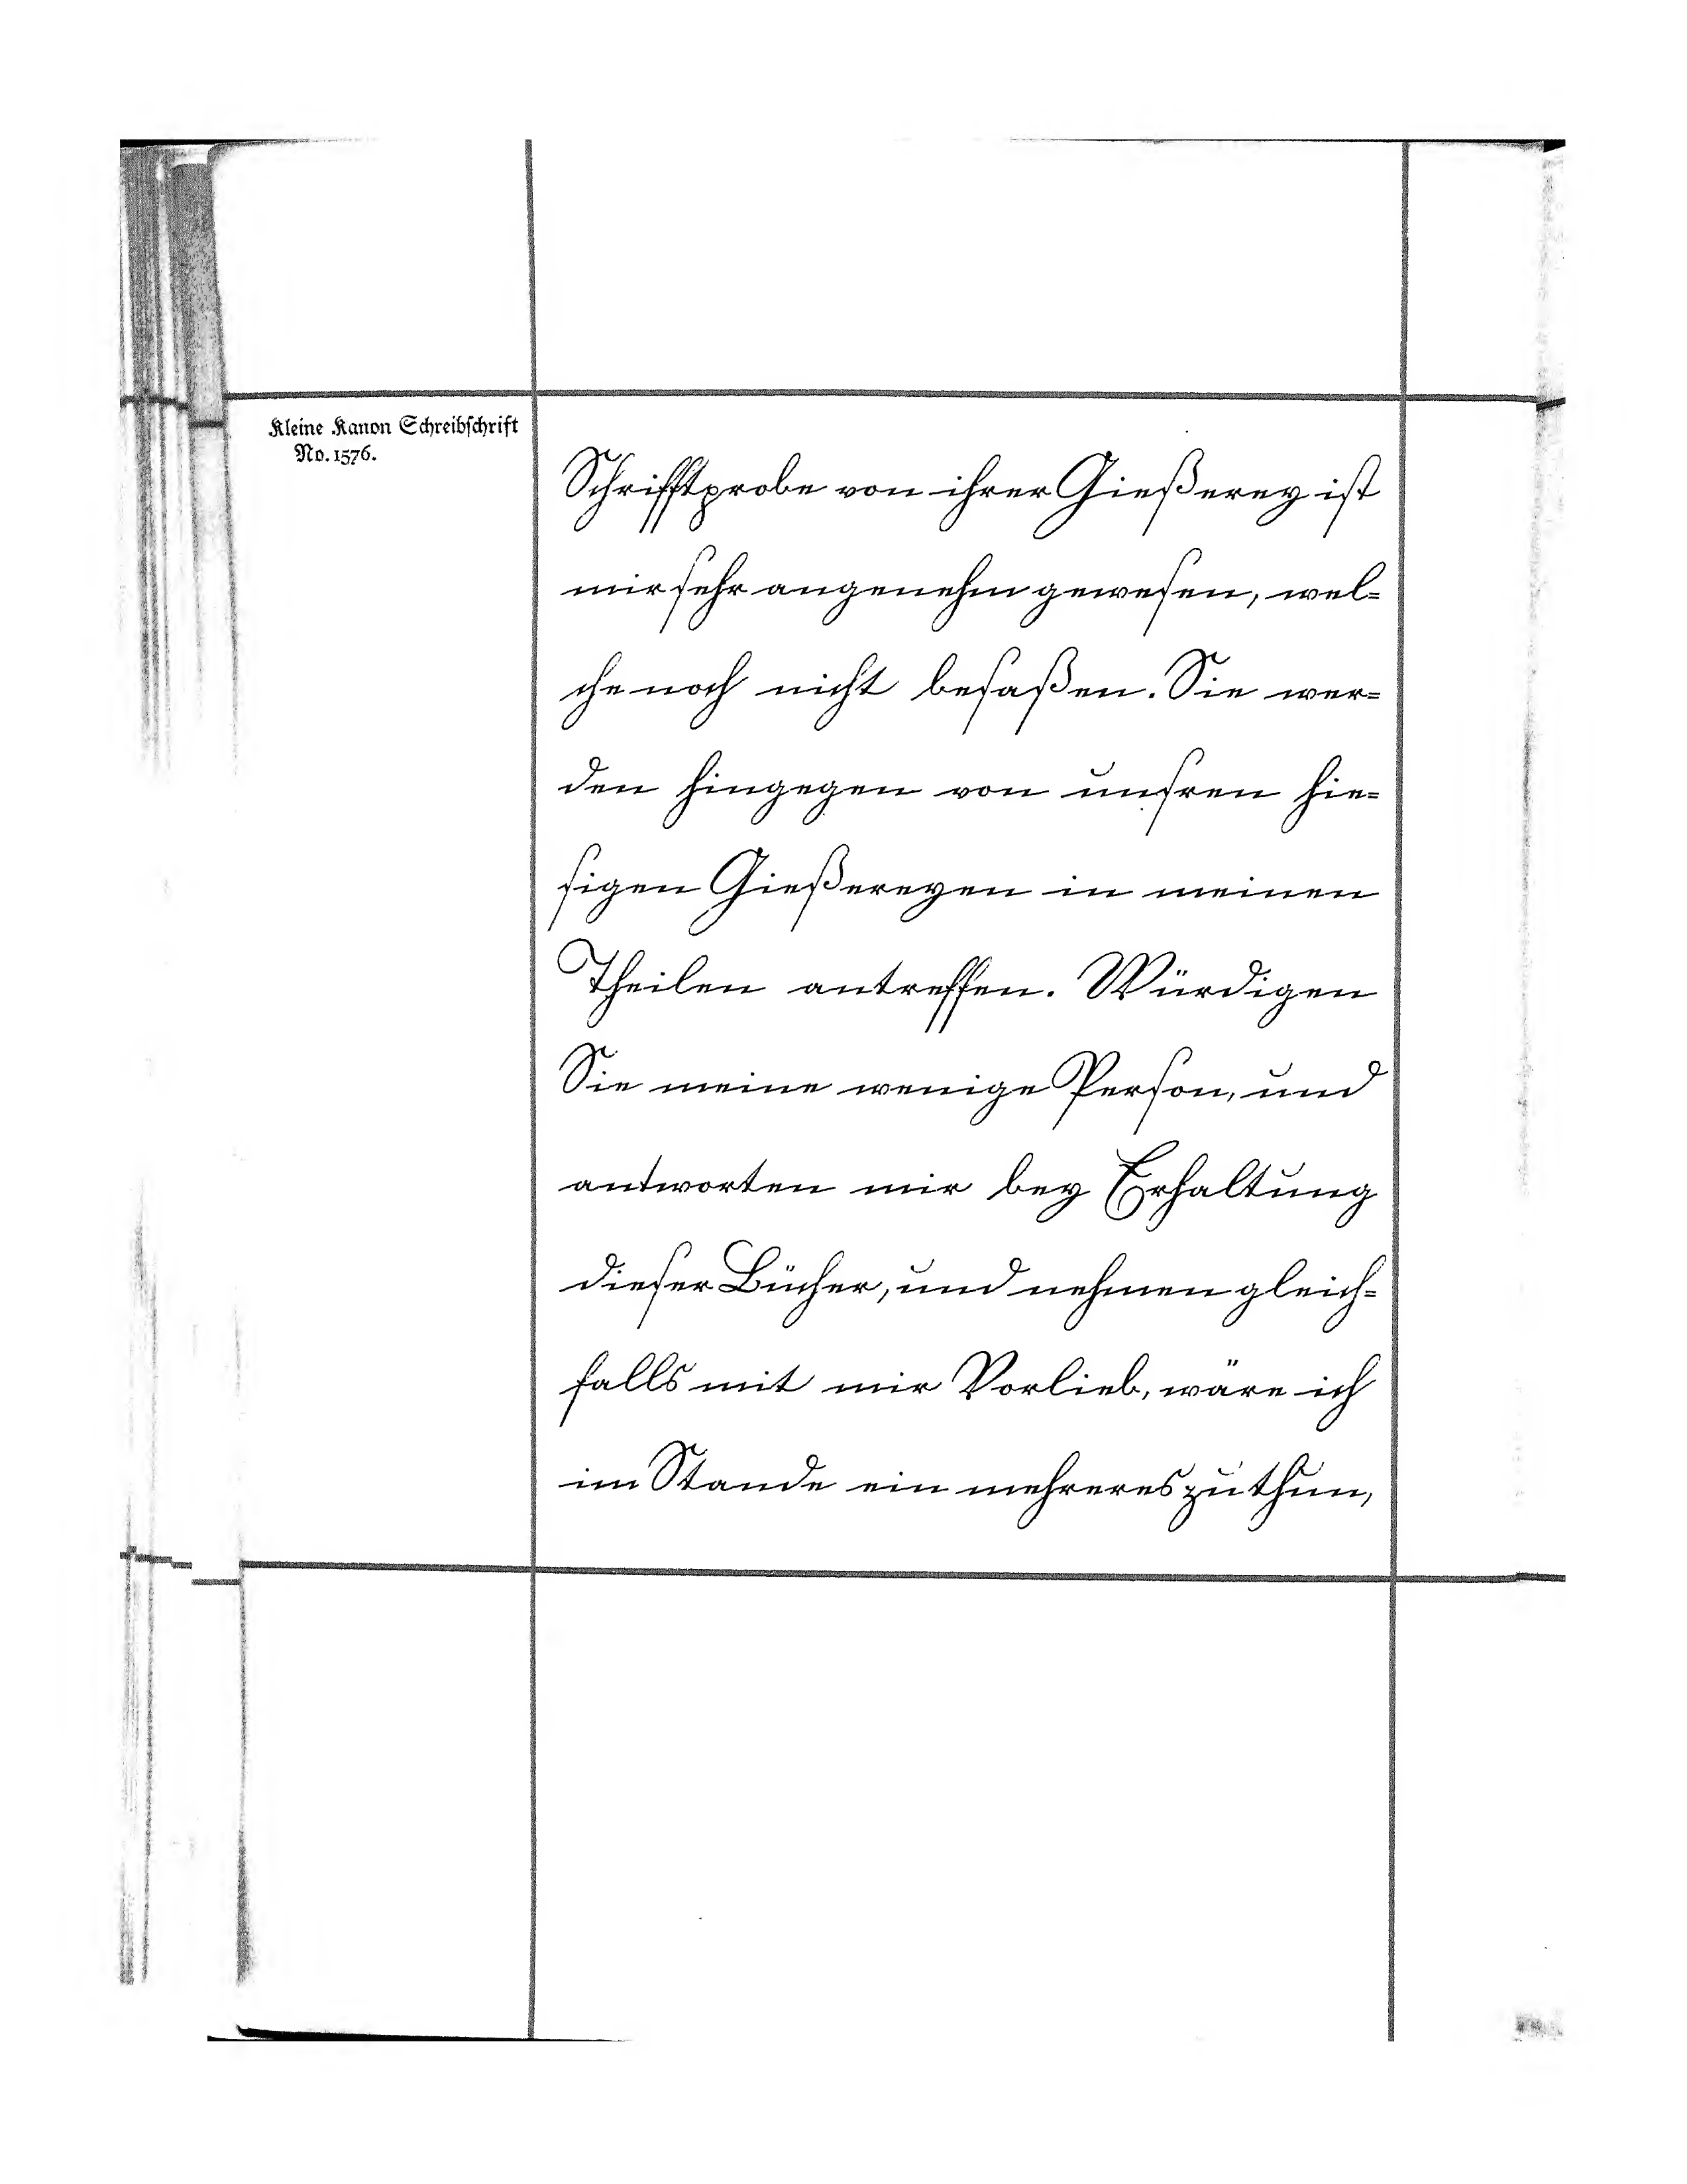 Kleine Kanon Schreibschrift
No. 1576.
Schrifftprobe von ihrer Gießerey ist
mir sehr angenehm gewesen, wel=
che noch nicht besaßen. Sie wer=
den hingegen von unsren hie=
sigen Gießereyen in meinen
Theilen antreffen. Würdigen
Sie meine wenige Person, und
antworten mir bey Erhaltung
dieser Bücher, und nehmen gleich=
falls mit mir Vorlieb, wäre ich
im Stande ein mehreres zu thun,